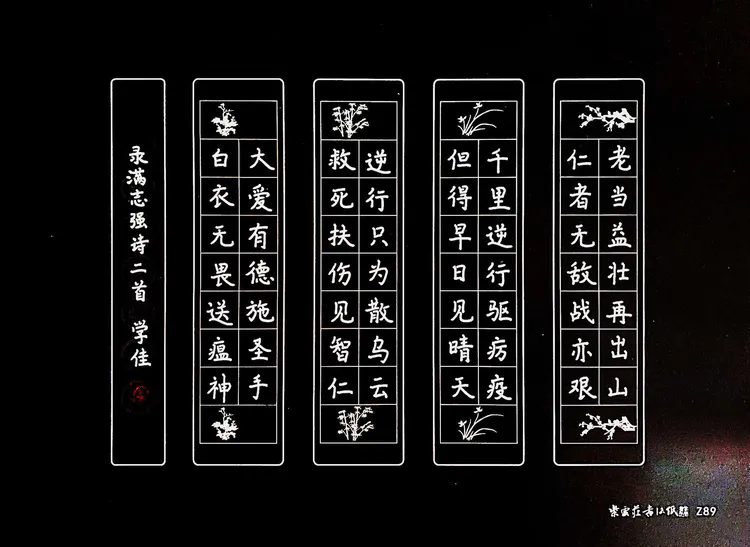 老当益壮再出山
仁者无敌战亦艰
千里逆行驱疠疫
但得早日见晴天
逆行只为散乌云
救死扶伤见智仁
大爱有德施圣手
白衣无畏送瘟神
录满志强诗二首 学佳
Z89